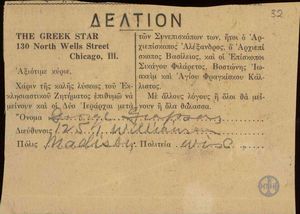 32
ΔΕΛΤΙΟΝ
THE GREEK STAR
130 North Wells Street
Chicago, Ill.
Ἀξιότιμε κύριε,
Χάριν τῆς καλῆς λύσεως τοῦ Ἐκ-
κλησιαστικοῦ Ζητήματος ἐπιθυμῶ νὰ
μείνουν καὶ οἱ Δύο Ἱεράρχαι μετὰ
τῶν Συνεπισκόπων των, ἤτοι ὁ Ἀρ-
χιεπίσκοπος Ἀλέξανδρος, ὁ Ἀρχιεπί-
σκοπος Βασίλειος, καὶ οἱ Ἐπίσκοποι
Σικάγου Φιλάρετος, Βοστώνης Ἰω-
ακεὶμ καὶ Ἁγίου Φραγκίσκου Κάλ-
λιστος.
Μὲ ἄλλους λόγους ἢ ὅλοι θὰ μεί-
νουν ἢ ὅλα θάλασσα.
Ὄνομα George
Διεύθυνσις
Πόλις Madison Πολιτεία Wis